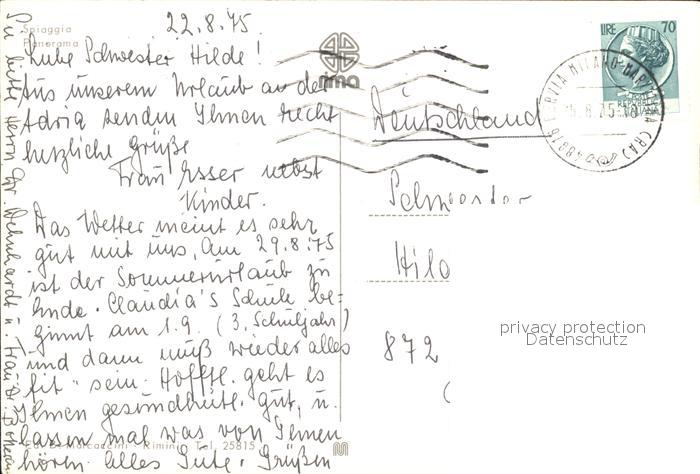 22.8.75
Spiaggia
Panorama
Liebe Schwester Hilde!
Aus unserem Urlaub an der
Adria senden Ihnen recht
herzliche Grüße
Frau Esser nebst
Kinder.
Das Wetter meint es sehr
gut mit uns. Am 29.8.75
ist der Sommerurlaub zu
Ende. Claudia's Schule be-
ginnt am 1.9. (3. Schuljahr)
und dann muß wieder alles
"fit" sein. Hofftl. geht es
Ihnen gesundheitl. gut, u.
lassen mal was von Ihnen
hören. Alles Gute. Grüßen
Sie bitte Herrn Dr. u. Frau Dr.
Rimini - Tel. 25815
rima
LIRE 70
Deutschland
Schwester
Hild
872
privacy protection
Datenschutz